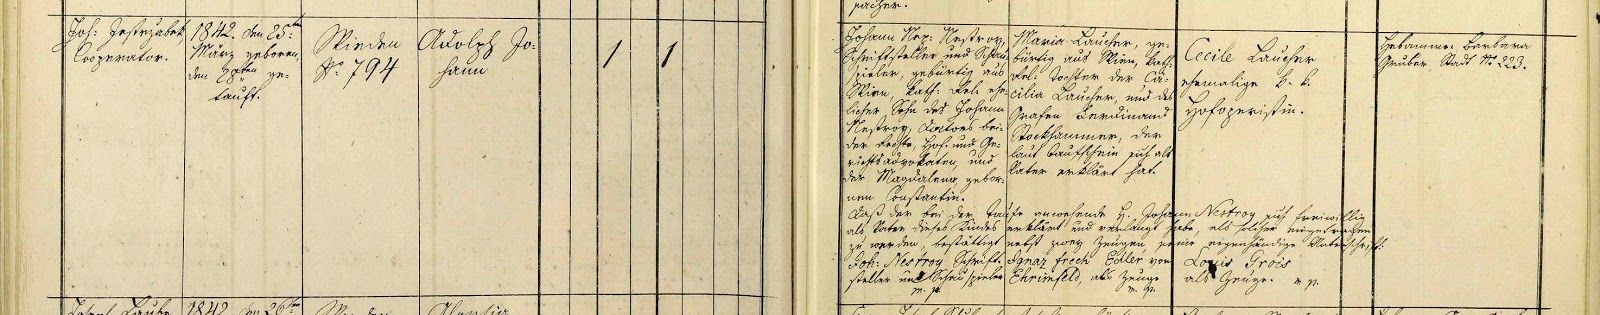 pacher.
Joh: Jestrzabek,
Cooperator.
1842. den 25ten
März geboren,
den 29ten ge-
tauft.
Wieden
No 794
Adolph Jo-
hann
1
1
Johann Nep: Nestroy,
Schriftsteller und Schau-
spieler, gebürtig aus
Wien, kath: Rel: ehe-
licher Sohn des Johann
Nestroy, Doctors bei-
der Rechte, Hof- und Ge-
richtsadvokaten, und
der Magdalena gebor-
nen Constantin.
Maria Laucher, ge-
bürtig aus Wien, kath:
Rel: Tochter der Cä-
cilia Laucher, und des
Grafen Ferdinand
Stockhammer, der
laut Taufschein sich als
Vater erklärt hat.
Cecile Laucher
ehemalige k. k.
Hofoperistin.
Hebamme: Barbara
Gruber, Stadt No 223.
Daß der bei der Taufe anwesende H. Johann Nestroy sich freiwillig
als Vater dieses Kindes erklärt und verlangt habe, als solcher eingetragen
zu werden, bestättigt nebst zwey Zeugen seine eigenhändige Unterschrift:
Joh: Nestroy Schrift-
steller und Schauspieler
m. p.
Ignaz Frech Edler von
Ehrimfeld, als Zeuge
m. p.
Louis Grois
als Zeuge. m p.
1842 den 26ten
Wieden
Aloysia